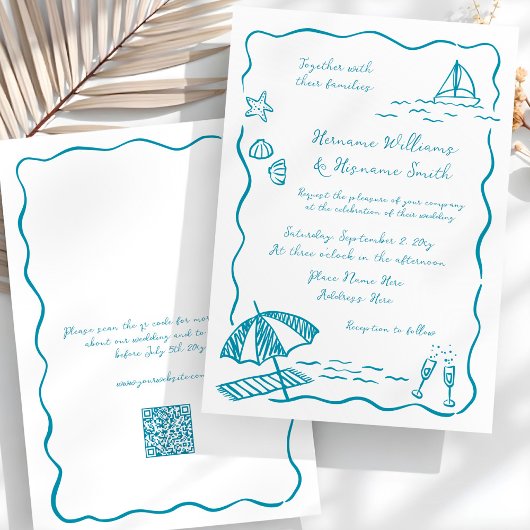 Together with
their families
Hername Williams
& Hisname Smith
Request the pleasure of your company
at the celebration of their wedding
Saturday, September 2, 20xy
At three o'clock in the afternoon
Place Name Here
Address Here
Reception to follow
Please scan the qr code for more
about our wedding and to
before July 5th 20xy
www.yourwebsite.com